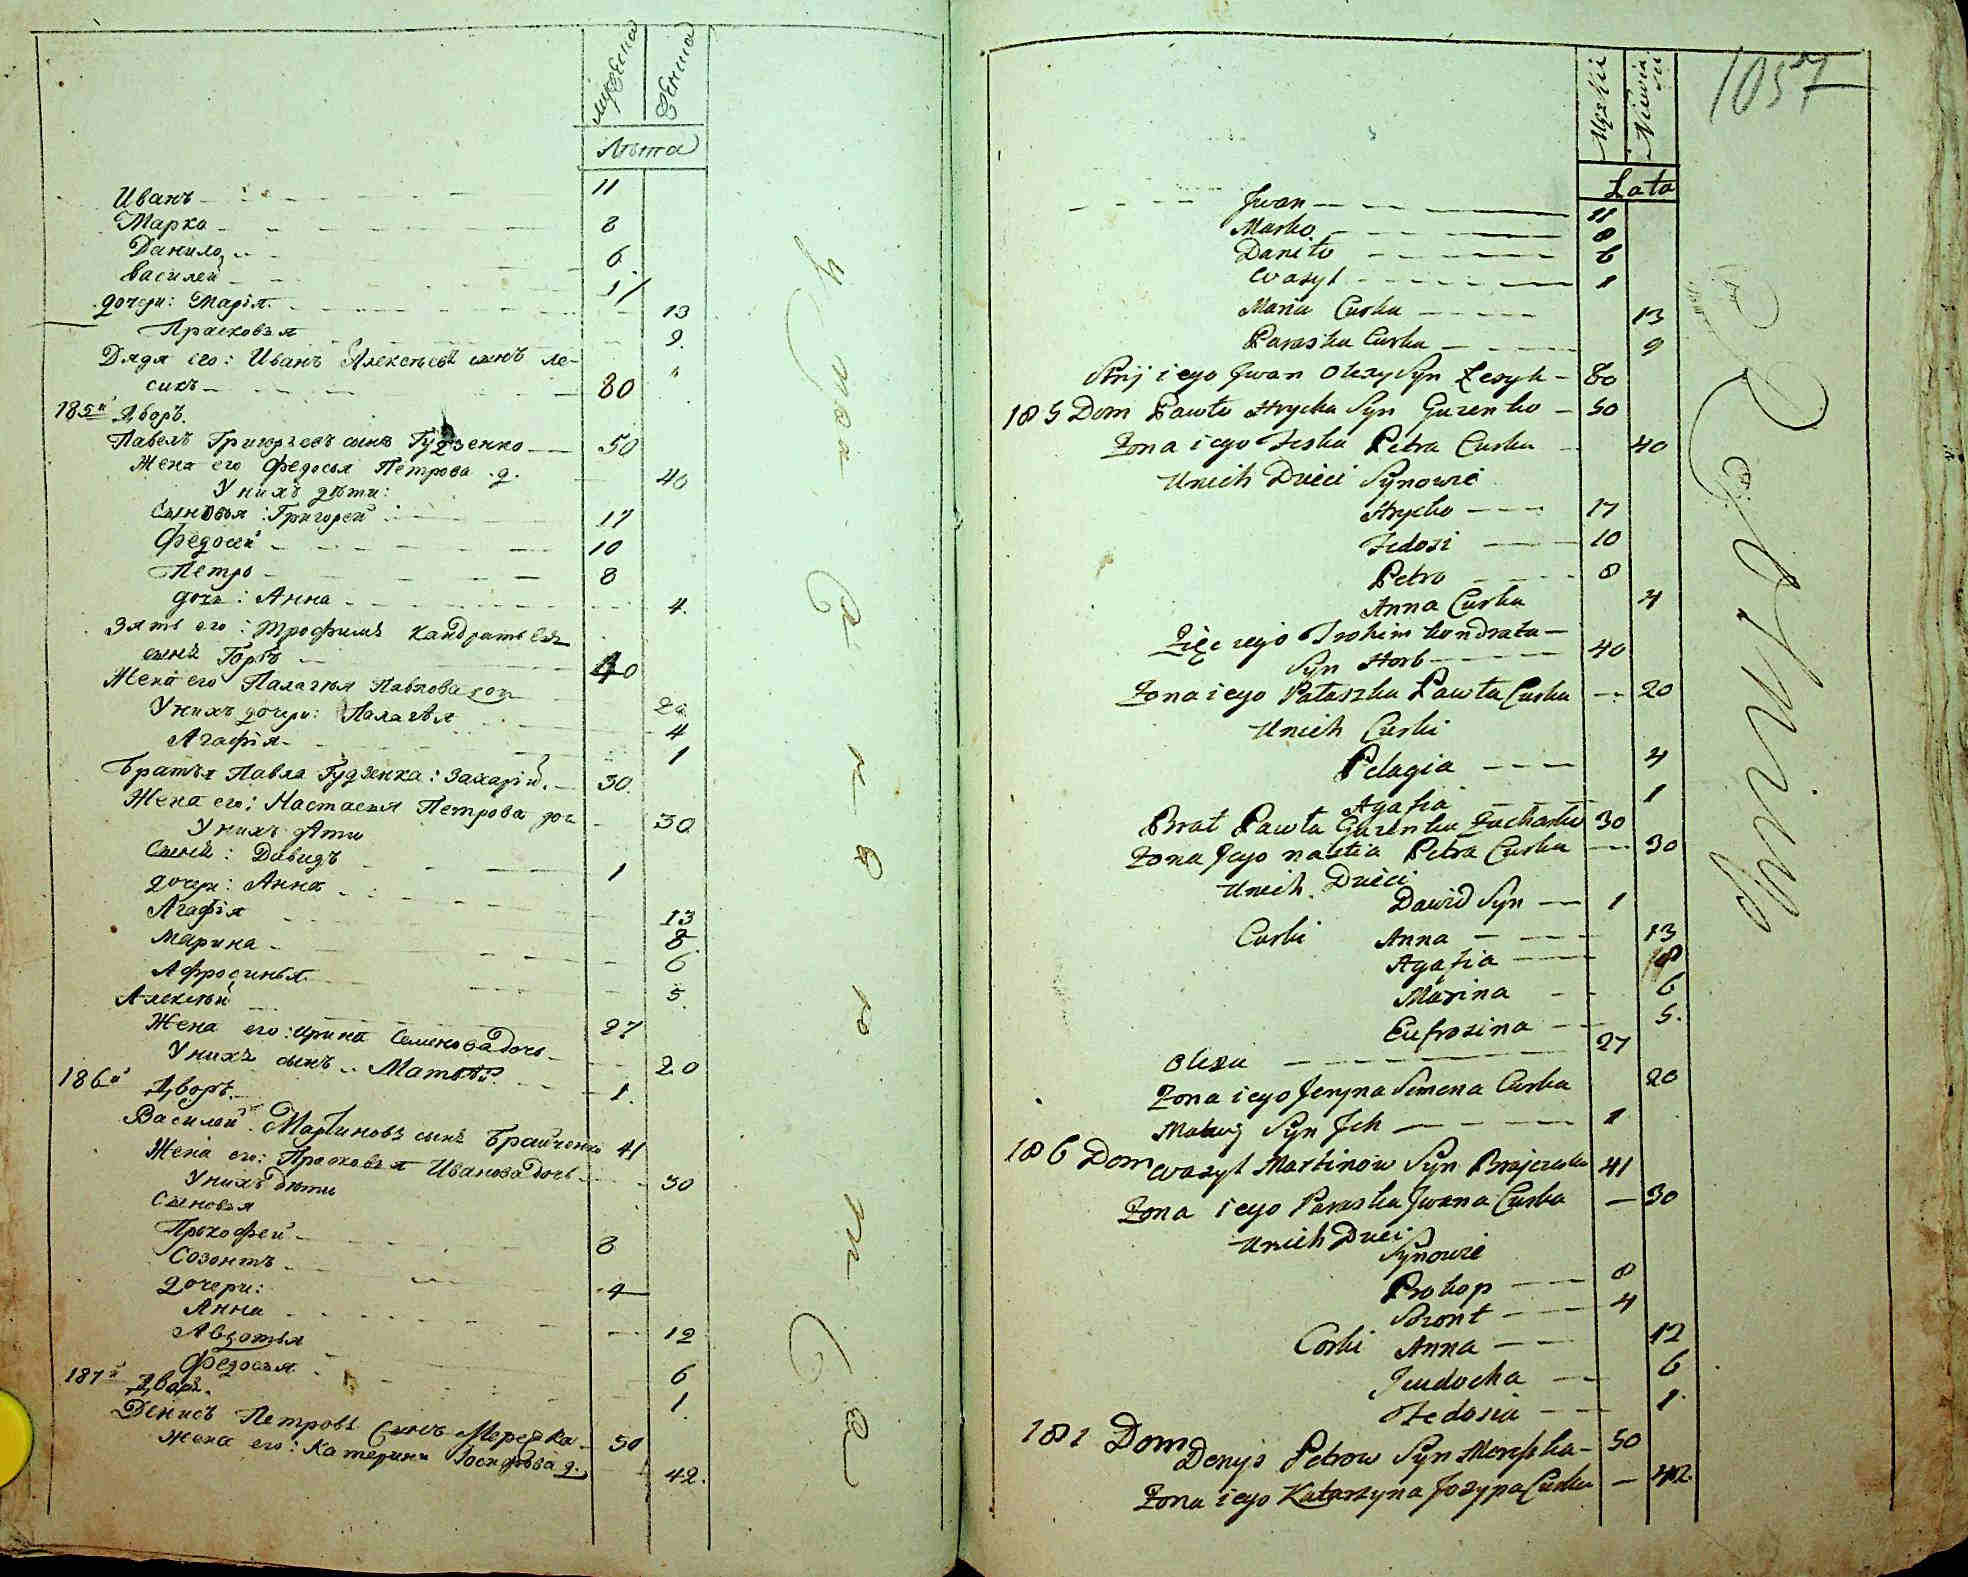 мужеска
женска
лѣта
Иванъ 11
Марко 8
Данило 6
Василей 1
дочери: Марія 13
Прасковья 9
Дядя его: Иванъ Алексѣевъ сынъ Ле-
сикъ 80
185й Дворъ.
Павелъ Григорьевъ сынъ Гудзенко 50
Жена его Федосья Петрова д. 40
У нихъ дѣти:
Сыновья: Григорей 17
Федосей 10
Петръ 8
дочь: Анна 4
Зять его: Трофимъ Кандратьевъ
сынъ Горбъ 40
Жена его Палагья Павлова доч 20
У нихъ дочери: Палагѣя 4
Агафія 1
Братья Павла Гудзенка: Захарій 30
Жена его: Настасья Петрова доч 30
У нихъ дѣти
Сынъ: Давидъ 1
дочери: Анна 13
Агафія 8
Марина 6
Афросинья 5
Алексѣй 27
Жена его: Ирина Семенова дочь 20
У нихъ сынъ Матвѣй 1
186й Дворъ.
Василей Мартиновъ сынъ Брайченко 41
Жена его: Прасковья Иванова дочь 30
У нихъ дѣти
Сыновья
Прокофей 8
Созонтъ 4
дочери:
Анна 12
Авдотья 6
Федосья 1
187й Дворъ.
Денисъ Петровъ сынъ Мережка 50
Жена его: Катерина Іосифова д. 42
1057
Męzkii
Lata
Jwan 11
Marko 8
Daniło 6
Wasyl 1
Maria Curka 13
Paraska Curka 9
Stryj iego Jwan Olexy Syn Lesyk 80
185 Dom Pawło Hrycka Syn Guzenko 50
Zona iego Feska Petra Curka 40
Unich Dzieci Synowie
Hrycko 17
Fedosi 10
Petro 8
Anna Curka 4
Zięc iego Trohim Kondrata
Syn Horb 40
Zona iego Pałaszka Pawła Curka 20
Unich Curki
Pelagia 4
Agafia 1
Brat Pawła Guzenka Zacharko 30
Zona Jego nastia Petra Curka 30
Unich Dzieci
Dawid Syn 1
Curki Anna 13
Agafia 8
Marina 6
Eufrosina 5.
Olexa 27
Zona iego Jeryna Semena Curka 20
Matwij Syn Jch 1
186 Dom Wasyl Martinow Syn Brajczenko 41
Zona iego Paraska Jwana Curka 30
Unich Dzieci
Synowie
Prokop 8
Sozont 4
Corki Anna 12
Jewdocha 6
Fedosia 1
187 Dom
Denys Petrow Syn Mereszka 50
Zona iego Katarzyna Jozypa Curka 42